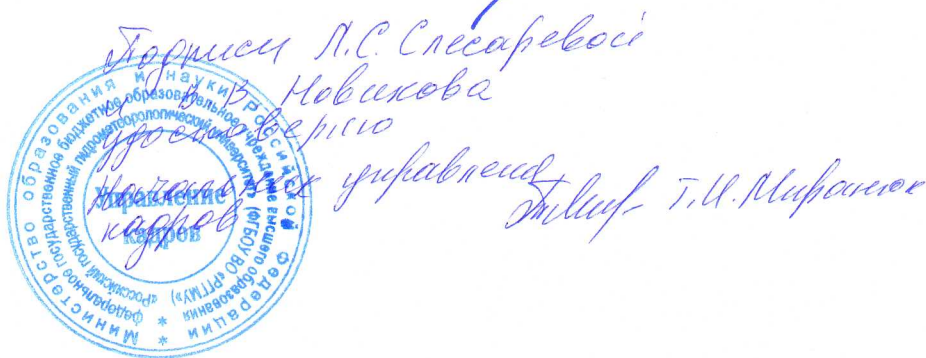 Подписи Л.С. Слесаревой
и В В Новикова
удостоверяю
Начальник управления
кадров
Т.И. Миранюк
Министерство образования и науки Российской Федерации
федеральное государственное бюджетное образовательное учреждение высшего образования
«Российский государственный гидрометеорологический университет» (ФГБОУ ВО «РГГМУ»)
Управление
кадров